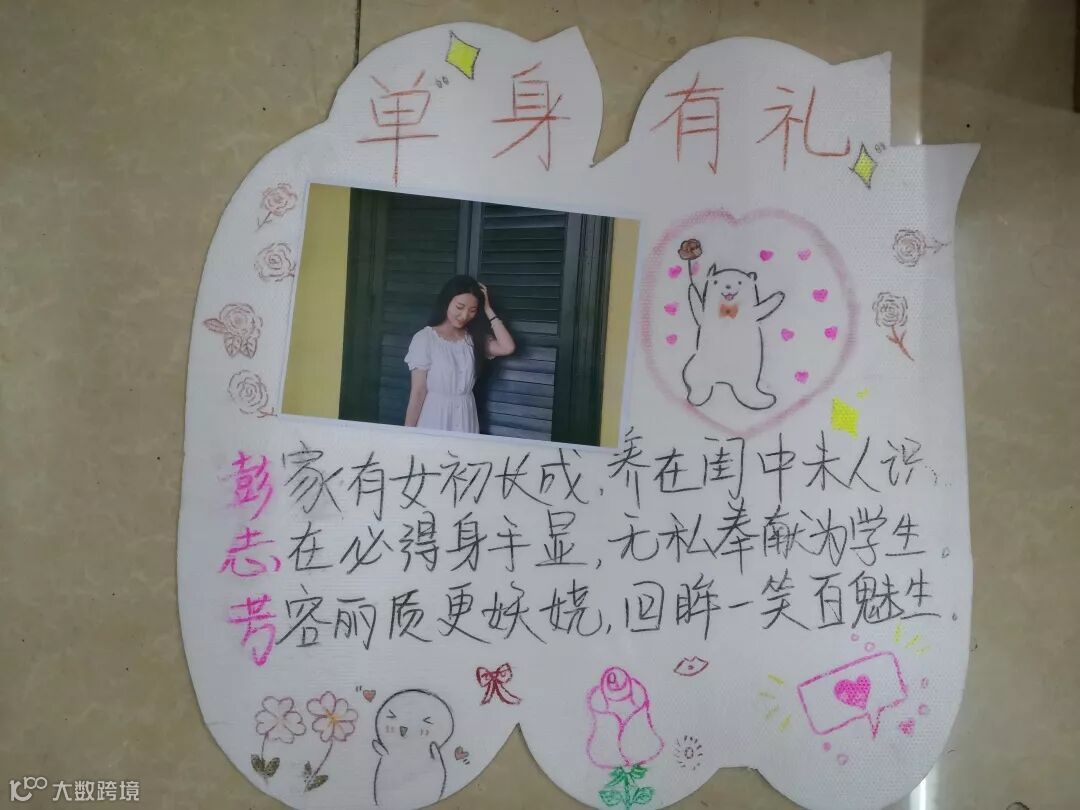 单身有礼
彭家有女初长成,养在闺中未人识,
志在必得身手显,无私奉献为学生。
芳容丽质更妖娆,回眸一笑百魅生.
大数跨境